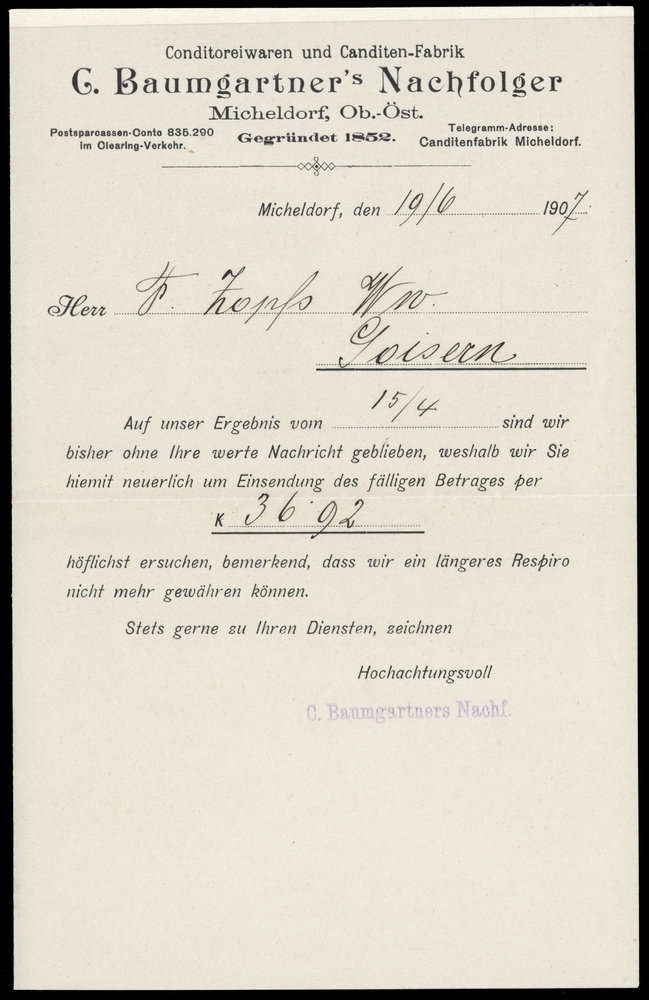 Conditoreiwaren und Canditen-Fabrik
C. Baumgartner's Nachfolger
Micheldorf, Ob.-Öst.
Postsparcassen-Conto 835.290
im Clearing-Verkehr.
Gegründet 1852.
Telegramm-Adresse:
Canditenfabrik Micheldorf.
Micheldorf, den 19/6 1907.
Herr F. Zopfs Ww.
Goisern
Auf unser Ergebnis vom 15/4 sind wir
bisher ohne Ihre werte Nachricht geblieben, weshalb wir Sie
hiemit neuerlich um Einsendung des fälligen Betrages per
K 36 92
höflichst ersuchen, bemerkend, dass wir ein längeres Respiro
nicht mehr gewähren können.
Stets gerne zu Ihren Diensten, zeichnen
Hochachtungsvoll
C. Baumgartners Nachf.